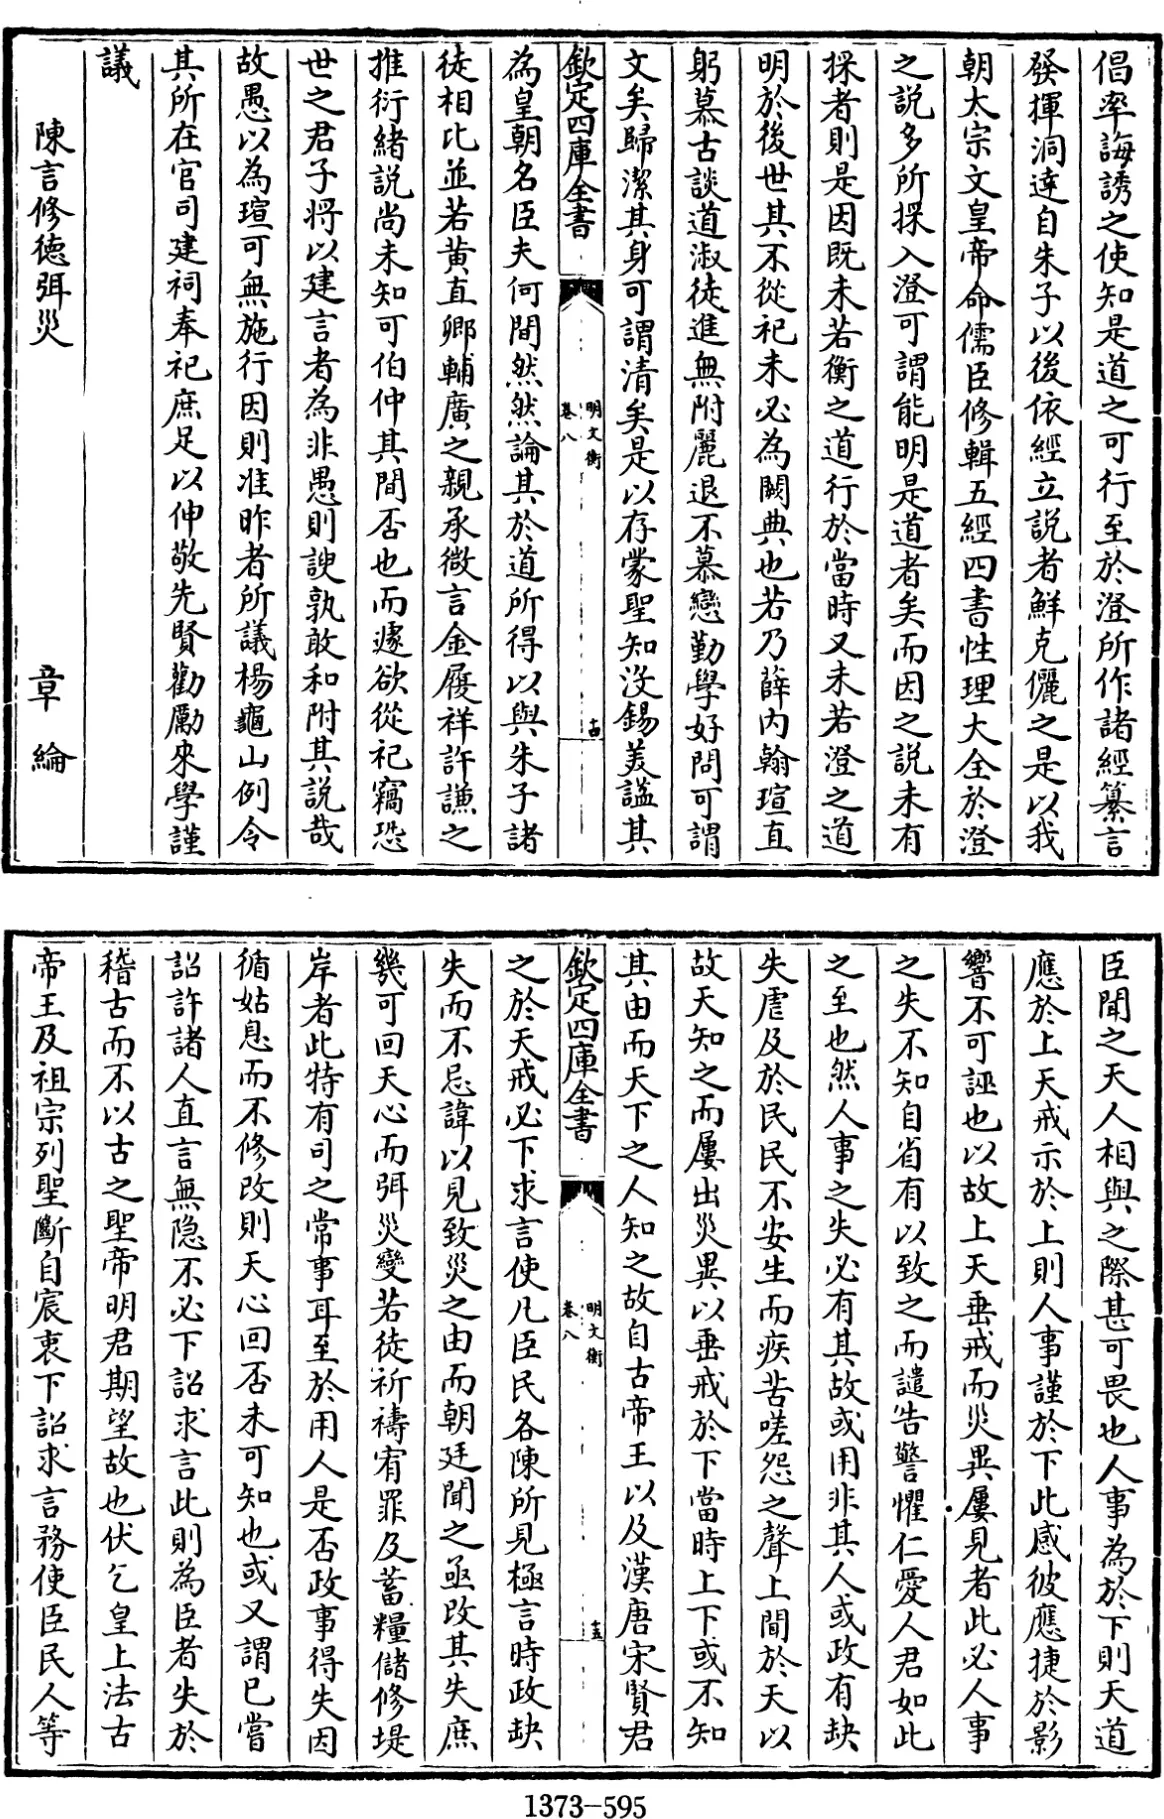 倡率誨誘之使知是道之可行至於澄所作諸經纂言
發揮洞達自朱子以後依經立說者鮮克儷之是以我
朝太宗文皇帝命儒臣修輯五經四書性理大全於澄
之說多所採入澄可謂能明是道者矣而因之說未有
採者則是因既未若衡之道行於當時又未若澄之道
明於後世其不從祀未必為闕典也若乃薛內翰瑄直
躬慕古談道淑徒進無附麗退不慕戀勤學好問可謂
文矣歸潔其身可謂清矣是以存蒙聖知沒錫美謚其
欽定四庫全書
明文衡
卷八
十四
為皇朝名臣夫何間然然論其於道所得以與朱子諸
徒相比並若黃直卿輔廣之親承微言金履祥許謙之
推衍緒說尚未知可伯仲其間否也而遽欲從祀竊恐
世之君子將以建言者為非愚則諛孰敢和附其說哉
故愚以為瑄可無施行因則准昨者所議楊龜山例令
其所在官司建祠奉祀庶足以伸敬先賢勸勵來學謹
議
陳言修德弭災
章綸
臣聞之天人相與之際甚可畏也人事為於下則天道
應於上天戒示於上則人事謹於下此感彼應捷於影
響不可誣也以故上天垂戒而災異屢見者此必人事
之失不知自省有以致之而譴告警懼仁愛人君如此
之至也然人事之失必有其故或用非其人或政有缺
失虐及於民民不安生而疾苦嗟怨之聲上聞於天以
故天知之而屢出災異以垂戒於下當時上下或不知
其由而天下之人知之故自古帝王以及漢唐宋賢君
欽定四庫全書
明文衡
卷八
十五
之於天戒必下求言使凡臣民各陳所見極言時政缺
失而不忌諱以見致災之由而朝廷聞之亟改其失庶
幾可回天心而弭災變若徒祈禱宥罪及蓄糧儲修堤
岸者此特有司之常事耳至於用人是否政事得失因
循姑息而不修改則天心回否未可知也或又謂已嘗
詔許諸人直言無隱不必下詔求言此則為臣者失於
稽古而不以古之聖帝明君期望故也伏乞皇上法古
帝王及祖宗列聖斷自宸衷下詔求言務使臣民人等
1373—595